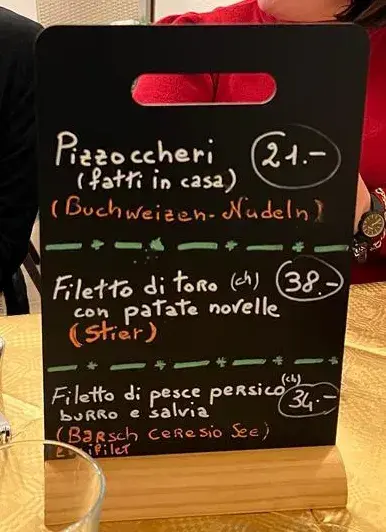 Pizzoccheri 21.-
(fatti in casa)
(Buchweizen-Nudeln)
Filetto di toro (ch) 38.-
con patate novelle
(Stier)
Filetto di pesce persico (ch) 34.-
burro e salvia
(Barsch Ceresio See)